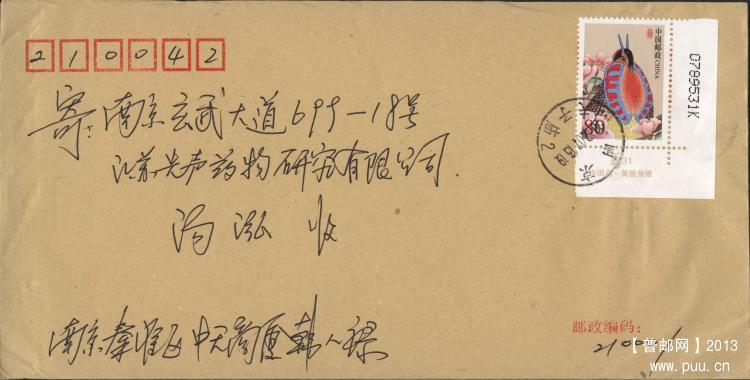 210042
中国邮政 CHINA
80
0789531K
寄:南京玄武大道699-18号
江苏先声药物研究有限公司
收
南京秦淮区中天商厦韩人禄
邮政编码:
【普邮网】2013
www.puu.cn